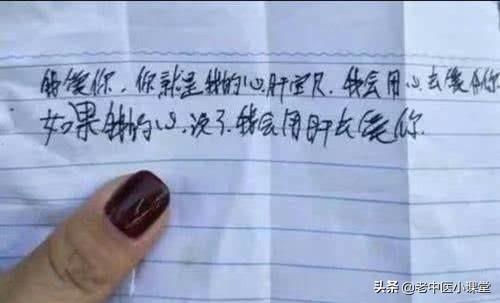 的爱你.你就是我的心肝宝贝.我会用心去爱你
如果我的心.没了.我会用肝去爱你.
头条 @老中医小课堂